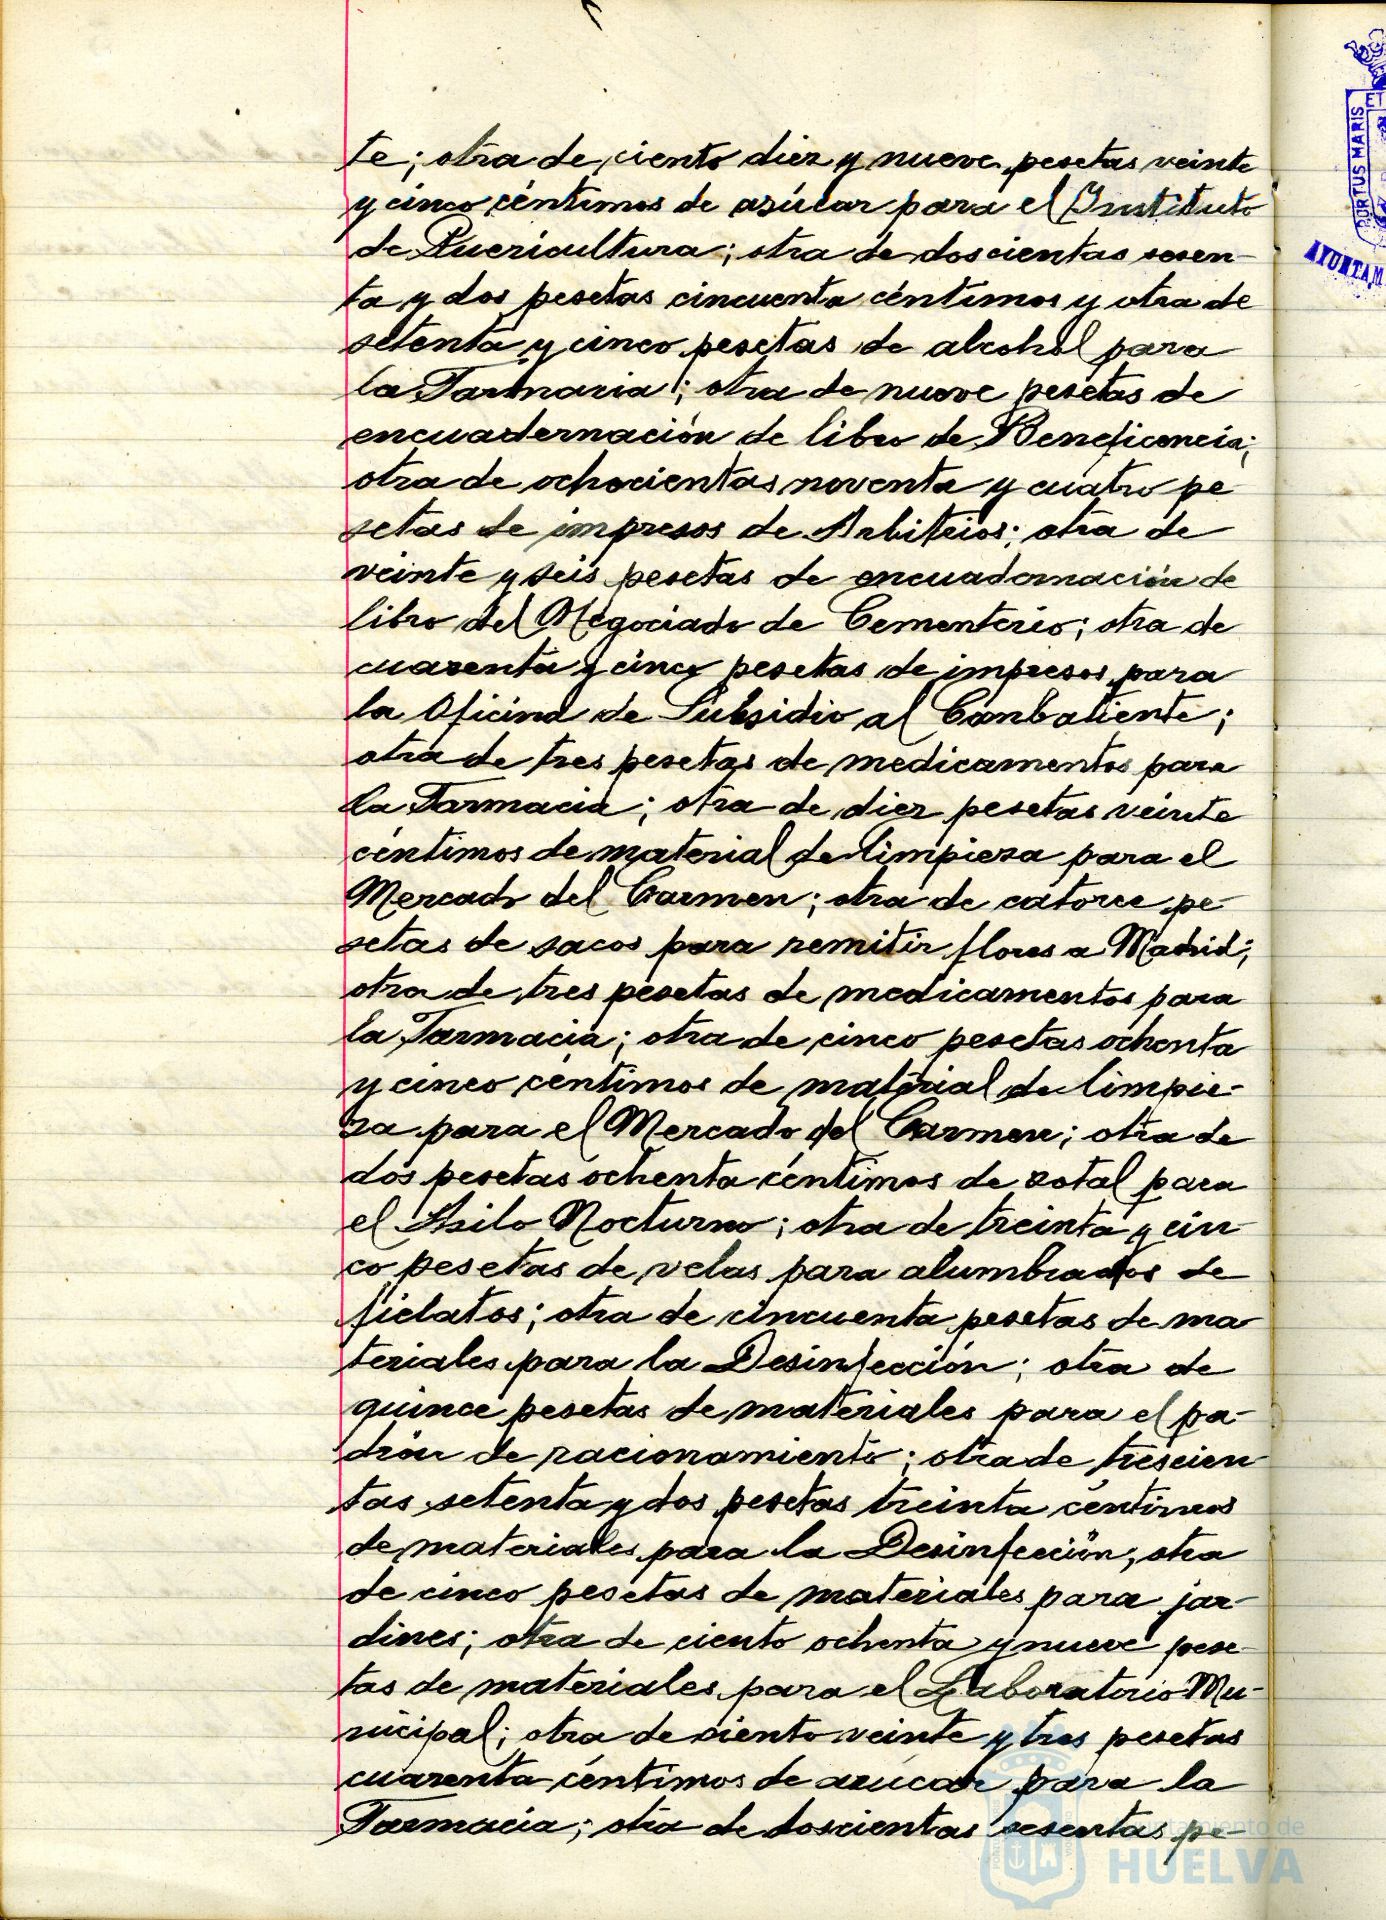 te; otra de ciento diez y nueve pesetas veinte
y cinco céntimos de azúcar para el Instituto
de Puericultura; otra de doscientas sesen-
ta y dos pesetas cincuenta céntimos y otra de
setenta y cinco pesetas de alcohol para
la Farmaria; otra de nueve pesetas de
encuadernación de libro de Beneficencia;
otra de ochocientas noventa y cuatro pe
setas de impresos de Arbitrios; otra de
veinte y seis pesetas de encuadernación de
libro del Negociado de Cementerio; otra de
cuarenta y cinco pesetas de impresos para
la Oficina de Subsidio al Combatiente;
otra de tres pesetas de medicamentos para
la Farmacia; otra de diez pesetas veinte
céntimos de material de limpieza para el
Mercado del Carmen; otra de catorce pe-
setas de sacos para remitir flores a Madrid;
otra de tres pesetas de medicamentos para
la Farmacia; otra de cinco pesetas ochenta
y cinco céntimos de material de limpie-
za para el Mercado del Carmen; otra de
dos pesetas ochenta céntimos de zotal para
el Asilo Nocturno; otra de treinta y cin-
co pesetas de velas para alumbrados de
fielatos; otra de cincuenta pesetas de ma
teriales para la Desinfección; otra de
quince pesetas de materiales para el pa-
drón de racionamiento; otra de trescien
tas setenta y dos pesetas treinta céntimos
de materiales para la Desinfección, otra
de cinco pesetas de materiales para jar-
dines; otra de ciento ochenta y nueve pese-
tas de materiales para el Laboratorio Mu-
nicipal; otra de ciento veinte y tres pesetas
cuarenta céntimos de azucar para la
Farmacia; otra de doscientas sesentas pe-
PORTUS MARIS ET
AYUNTAM
Ayuntamiento de
HUELVA